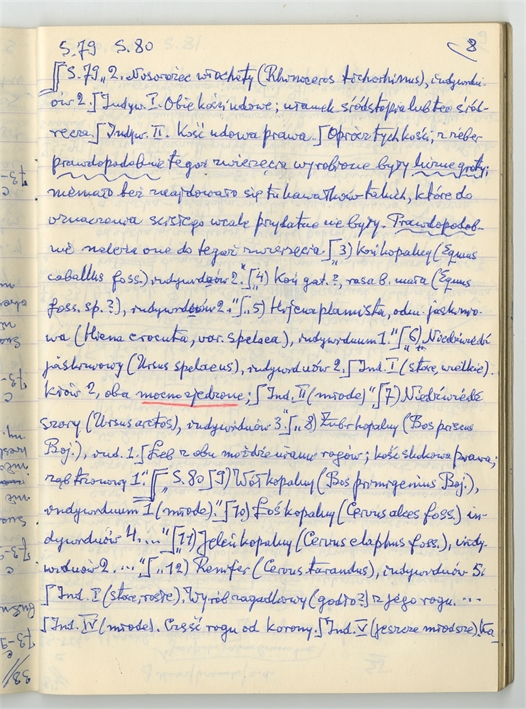 S.79 S.80 8
S.79 „2. Nosorożec włochaty (Rhinoceros tichorhinus), indywidu-
ów 2. Indyw. I. Obie kości udowe; ułamek śródstopia lub też śród-
ręcza. Indyw. II. Kość udowa prawa. Oprócz tych kości, z żeber
prawdopodobnie tegoż zwierzęcia wyrobione były liczne groty;
niemało też znajdowało się tu kawałków takich, które do
oznaczenia ścisłego wcale przydatne nie były. Prawdopodob-
nie należą one do tegoż zwierzęcia. „3) Koń kopalny (Equus
caballus foss.), indywiduów 2." „4) Koń gat.?, rasa b. mała (Equus
foss. sp.?), indywiduów 2." „5) Hyjena plamista, odm. jaskinio-
wa (Hiena crocuta, var. spelaea), indywiduum 1." „6) Niedźwiedź
jaskiniowy (Ursus spelaeus), indywiduów 2. Ind. I (stare, wielkie).
Kłów 2, oba mocno zjedzone; Ind. II (młode)" „7) Niedźwiedź
szary (Ursus arctos), indywiduów 3." „8) Żubr kopalny (Bos priscus
Boj.), ind. 1. Łeb z obu możdżeniami rogów; kość słuchowa prawa;
ząb trzonowy 1." „S.80 9) Wół kopalny (Bos primigenius Boj.),
indywiduum 1 (młode)." „10) Łoś kopalny (Cervus alces foss) in-
dywiduów 4...." „11) Jeleń kopalny (Cervus elaphus foss.), indy-
widuów 2..." „12) Renifer (Cervus tarandus), indywiduów 5:
Ind. I (stare, rosłe). Wyrób zagadkowy (godło?) z jego rogu....
Ind. IV (młode). Część rogu od korony. Ind. V (jeszcze młodsze).